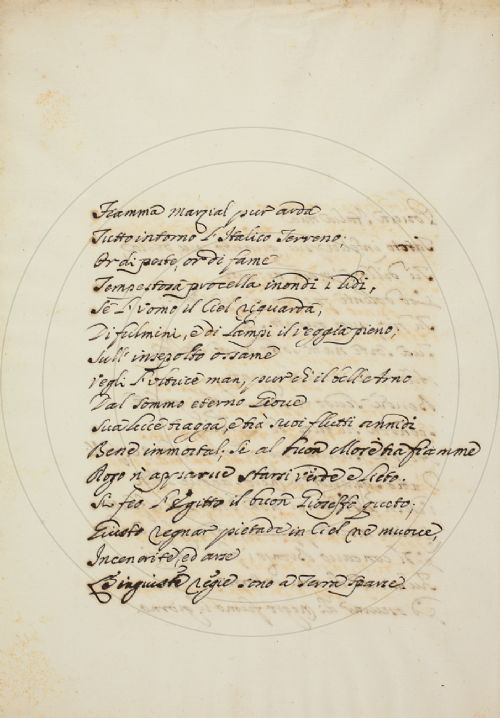 Fiamma marzial pur arda
Tutto intorno l'Italico Terreno;
Or di peste, or di fame
Tempestosa procella inondi i lidi,
Se l'uomo il Ciel riguarda,
Di fulmini, e di lampi il veggia pieno;
Sull'insepolto ossame
man, pur è il bell'Arno
Dal sommo eterno Giove
e tra suoi flutti annidi
Bene immortal; Si al buon Mosè tra fiamme
Rogo n'apparve starsi verde e lieto.
Si feo l'Egitto il buon Gioseffo queto;
Giusto regnar pietade in Ciel ne muove,
Incenerite, ed arse
Le ingiuste regie sono a Terra sparse.